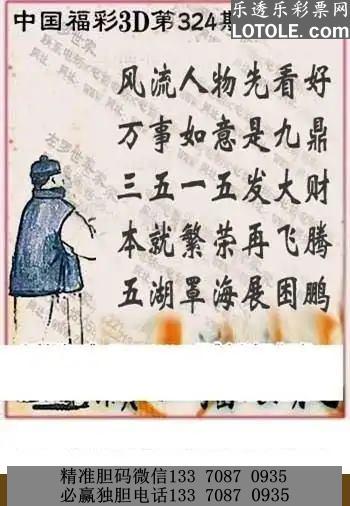 中国福彩3D第324期
乐透乐彩票网
LOTOLE.COM
风流人物先看好
万事如意是九鼎
三五一五发大财
本就繁荣再飞腾
五湖罩海展困鹏
精准胆码微信133 7087 0935
必赢独胆电话133 7087 0935